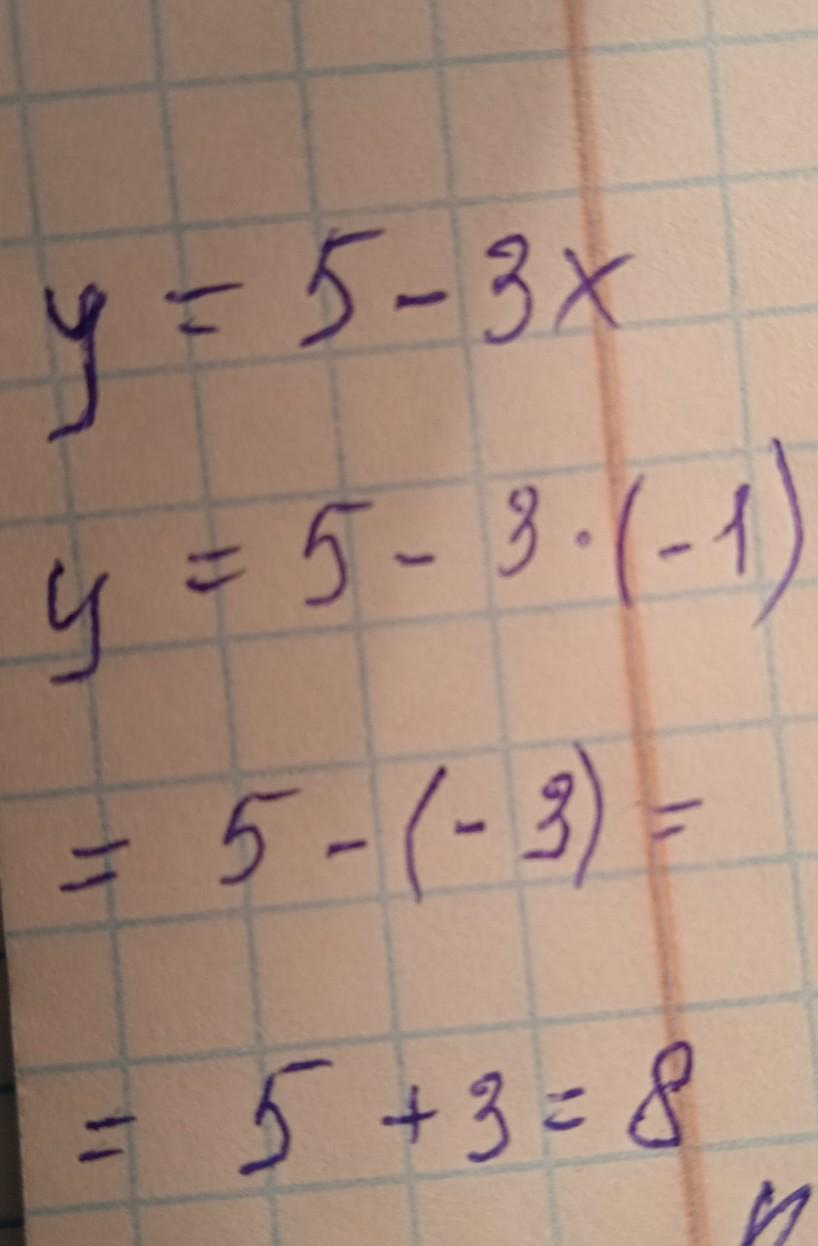 y = 5 - 3x
y = 5 - 3 · (-1)
= 5 - (-3) =
= 5 + 3 = 8